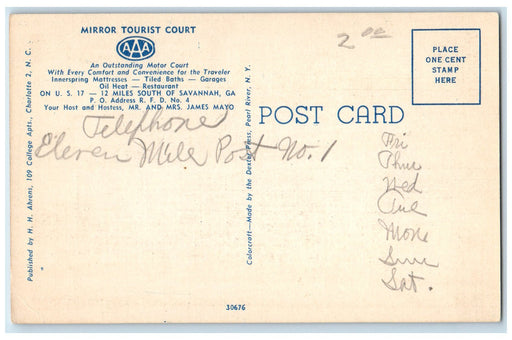 MIRROR TOURIST COURT
AAA
An Outstanding Motor Court
With Every Comfort and Convenience for the Traveler
Innerspring Mattresses — Tiled Baths — Garages
Oil Heat — Restaurant
ON U. S. 17 — 12 MILES SOUTH OF SAVANNAH, GA
P. O. Address R. F. D. No. 4
Your Host and Hostess, MR. AND MRS. JAMES MAYO
Telephone
Eleven Mile Post No. 1
Published by H. H. Ahrens, 109 College Apts., Charlotte 2, N. C.
Colorcraft—Made by the Dexter Press, Pearl River, N. Y.
POST CARD
2 00
PLACE
ONE CENT
STAMP
HERE
Fri
Thur
Wed
Tue
Mone
Sun
Sat.
30676